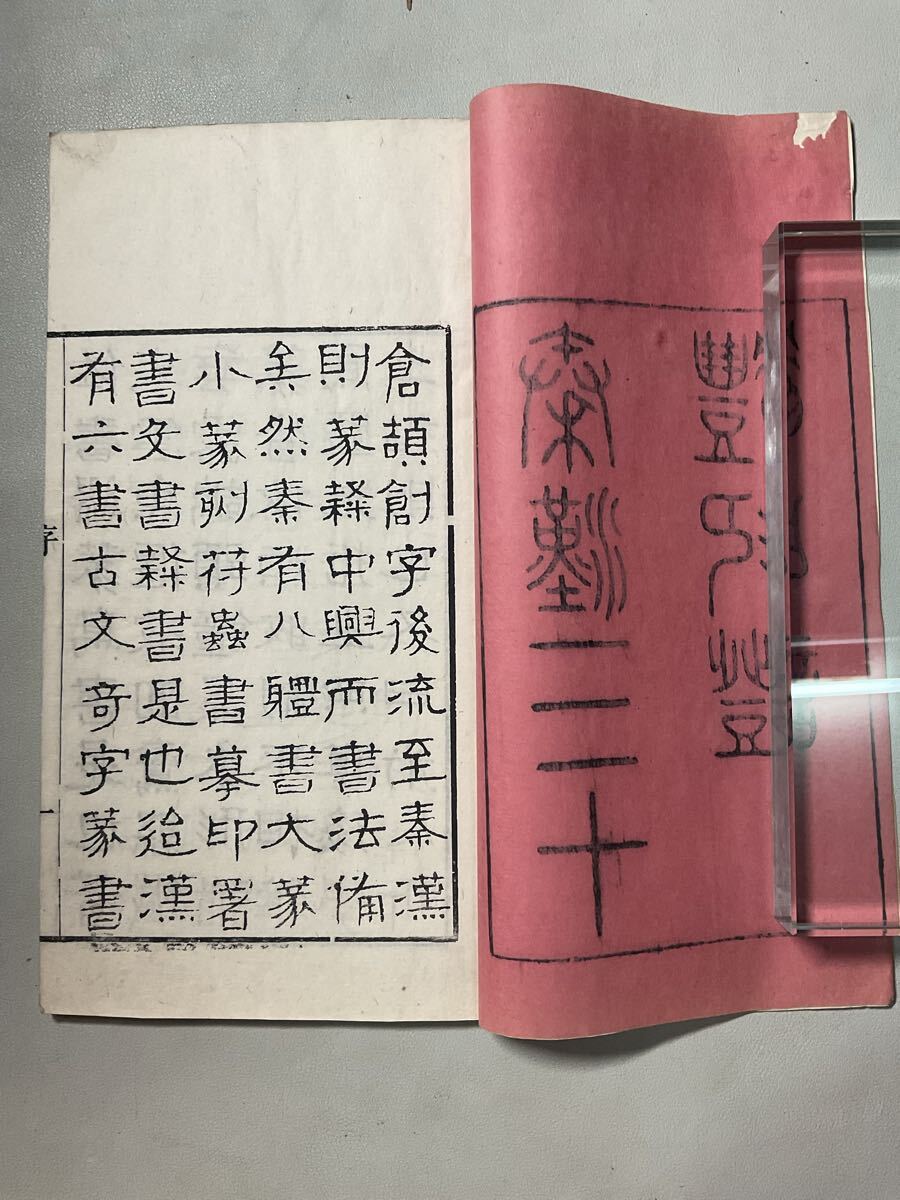 秦漢三十
倉頡創字後流至秦漢
則篆隸中興而書法備
矣然秦有八體書大篆
小篆刻符蟲書摹印署
書殳書隸書是也迨漢
有六書古文奇字篆書
序
一